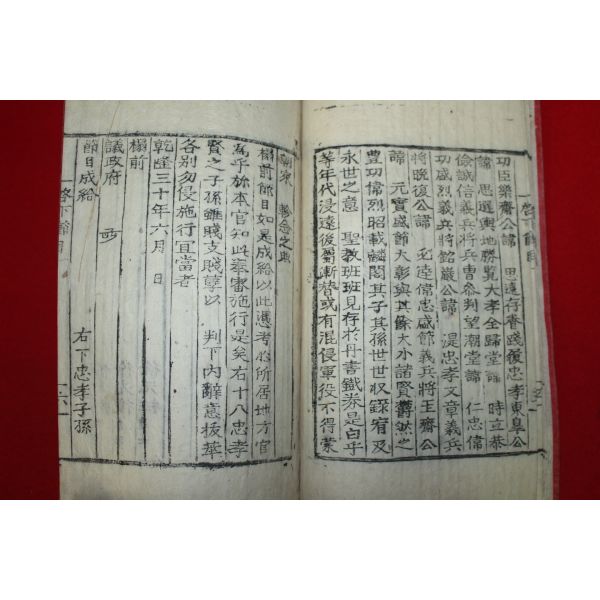 功臣樂齋公諱 思遠存眷踐履忠孝東臯公
諱 思選輿地勝覽大孝全歸堂諱 時立恭
儉誠信義兵將兵曹參判望潮堂諱 仁忠偉
功盛烈義兵將銘巖公諱 湜忠孝文章義兵
將晩復公諱 起陸偉忠盛節義兵將王齋公
諱 元實盛節大彰與其餘大小諸賢欝然之
豊功偉烈昭載麟閣其子其孫世世収錄宥及
永世之意 聖教班班見存於丹書鐵券是白乎
等年代浸遠後裔漸替或有混侵軍役不得蒙
朝家 軫念之典
榻前節目如是成給以此憑考於所居地方官
爲乎旀本官知此奉審施行是矣右十八忠孝
賢之子孫雖賤支賤孽以 判下內辭意拔華
各別勿侵施行宜當者
乾隆三十年六月 日
榻前
議政府
節目成給 右下忠孝子孫
啓下節目 六